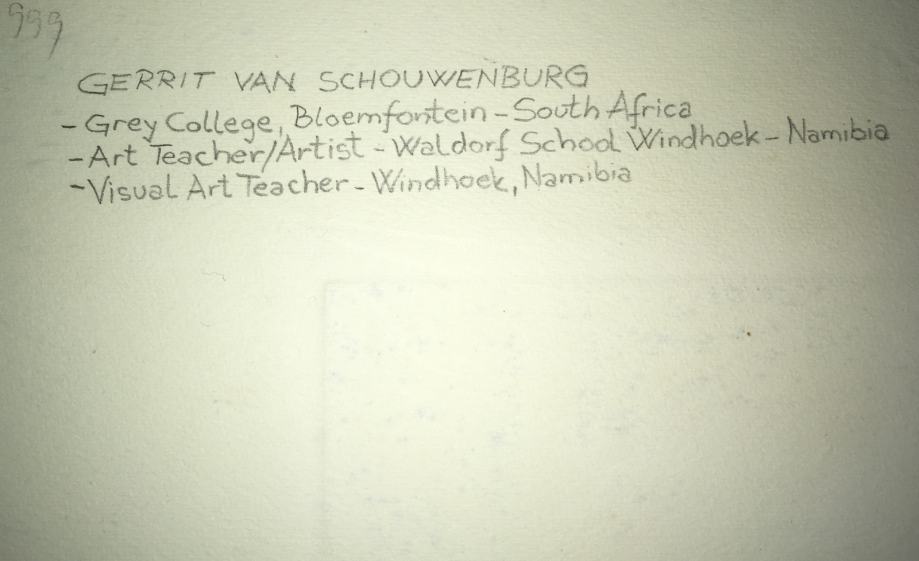 999
GERRIT VAN SCHOUWENBURG
- Grey College, Bloemfontein - South Africa
- Art Teacher/Artist - Waldorf School Windhoek - Namibia
- Visual Art Teacher - Windhoek, Namibia